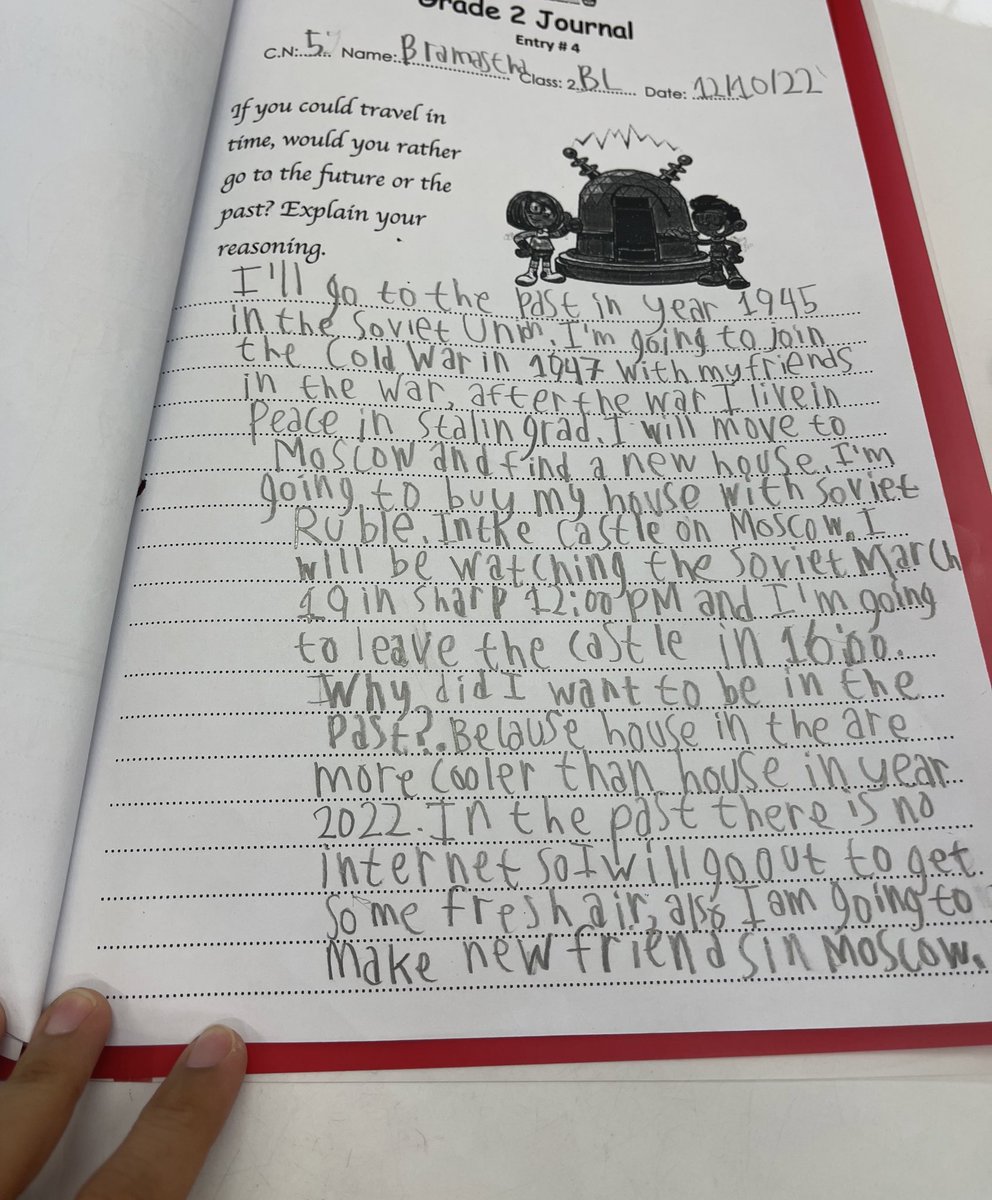 Grade 2 Journal
Entry # 4
C.N:.5.. Name:.Bramastha Class: 2.BL Date: 12/10/22
If you could travel in
time, would you rather
go to the future or the
past? Explain your
reasoning.
I'll go to the past in year 1945
in the Soviet Union. I'm going to join
the Cold War in 1947 with my friends
in the war, after the war I live in
Peace in Stalingrad. I will move to
Moscow and find a new house. I'm
going to buy my house with Soviet
Ruble. In the castle on Moscow. I
will be watching the Soviet March
19 in sharp 12:00 PM and I'm going
to leave the castle in 16:00.
Why did I want to be in the
past?. Because house in the are
more cooler than house in year
2022. In the past there is no
internet so I will go out to get
some fresh air, also I am going to
Make new friends in Moscow.